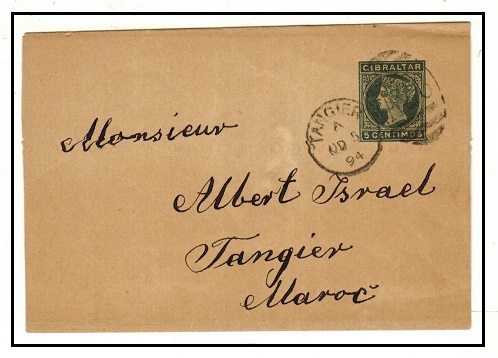 GIBRALTAR
5 CENTIMOS
TANGIER
94
Monsieur
Albert Israel
Tangier
Maroc